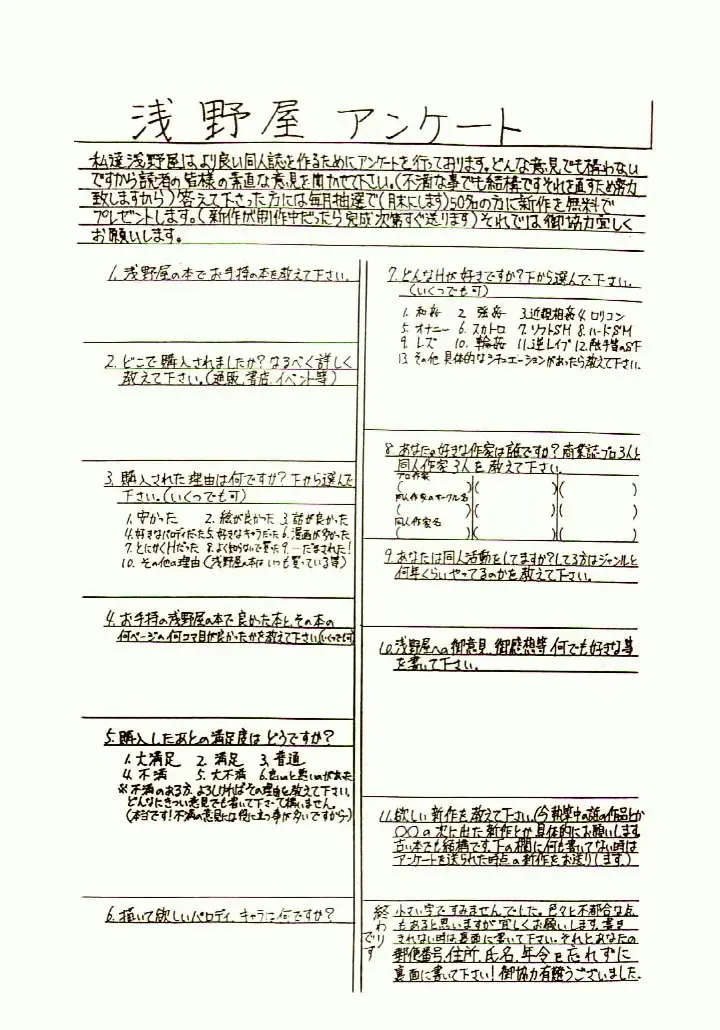 浅野屋 アンケート
私達浅野屋はより良い同人誌を作るためにアンケートを行っております。どんな意見でも構わない
ですから読者の皆様の素直な意見を聞かせて下さい。(不満な事でも結構ですそれを直すため努力
致しますから)答えて下さった方には毎月抽選で(月末にします)50名の方に新作を無料で
プレゼントします。(新作が制作中だったら完成次第すぐ送ります)それでは御協力宜しく
お願いします。
1. 浅野屋の本でお手持の本を教えて下さい。
2. どこで購入されましたか?なるべく詳しく
教えて下さい。(通販、書店、イベント等)
3. 購入された理由は何ですか?下から選んで
下さい。(いくつでも可)
1. 安かった 2. 絵が良かった 3. 話が良かった
4. 好きなパロディだった 5. 好きなキャラだった 6. 漫画が多かった
7. とにかくHだった 8. よく知らないで買った 9. …だまされた!
10. その他の理由(浅野屋の本はいつも買っている等)
4. お手持の浅野屋の本で良かった本と、その本の
何ページの何コマ目が良かったかを教えて下さい(いくつでも可)
5. 購入したあとの満足度はどうですか?
1. 大満足 2. 満足 3. 普通
4. 不満 5. 大不満 6. 良いのと悪いのがあった
※不満のある方、よろしければその理由を教えて下さい。
どんなにきつい意見でも書いて下さって構いません。
(本当です!不満の意見には役に立つ事が多いですから…)
6. 描いて欲しいパロディ、キャラは何ですか?
7. どんなHが好きですか?下から選んで下さい。
(いくつでも可)
1. 和姦 2. 強姦 3. 近親相姦 4. ロリコン
5. オナニー 6. スカトロ 7. ソフトSM 8. ハードSM
9. レズ 10. 輪姦 11. 逆レイプ 12. 触手等のSF
13. その他 具体的なシチュエーションがあったら教えて下さい。
8. あなたの好きな作家は誰ですか?商業誌・プロ3人と
同人作家3人を教えて下さい。
プロ作家
( )( )( )
同人作家のサークル名
( )( )( )
同人作家名
( )( )( )
9. あなたは同人活動をしてますか?してる方はジャンルと
何年くらいやってるのかを教えて下さい。
10. 浅野屋への御意見、御感想等、何でも好きな事
を書いて下さい。
11. 欲しい新作を教えて下さい。(今執筆中の話の作品とか
〇〇の次に出た新作とか具体的にお願いします。
古い本でも結構です。下の欄に何も書いてない時は
アンケートを送られた時点の新作をお送りします。)
終わりです
小さい字ですみませんでした。色々と不都合な点
もあると思いますが宜しくお願いします。書き
きれない時は裏面に書いて下さい。それとあなたの
郵便番号、住所、氏名、年令を忘れずに
裏面に書いて下さい!御協力有難うございました。